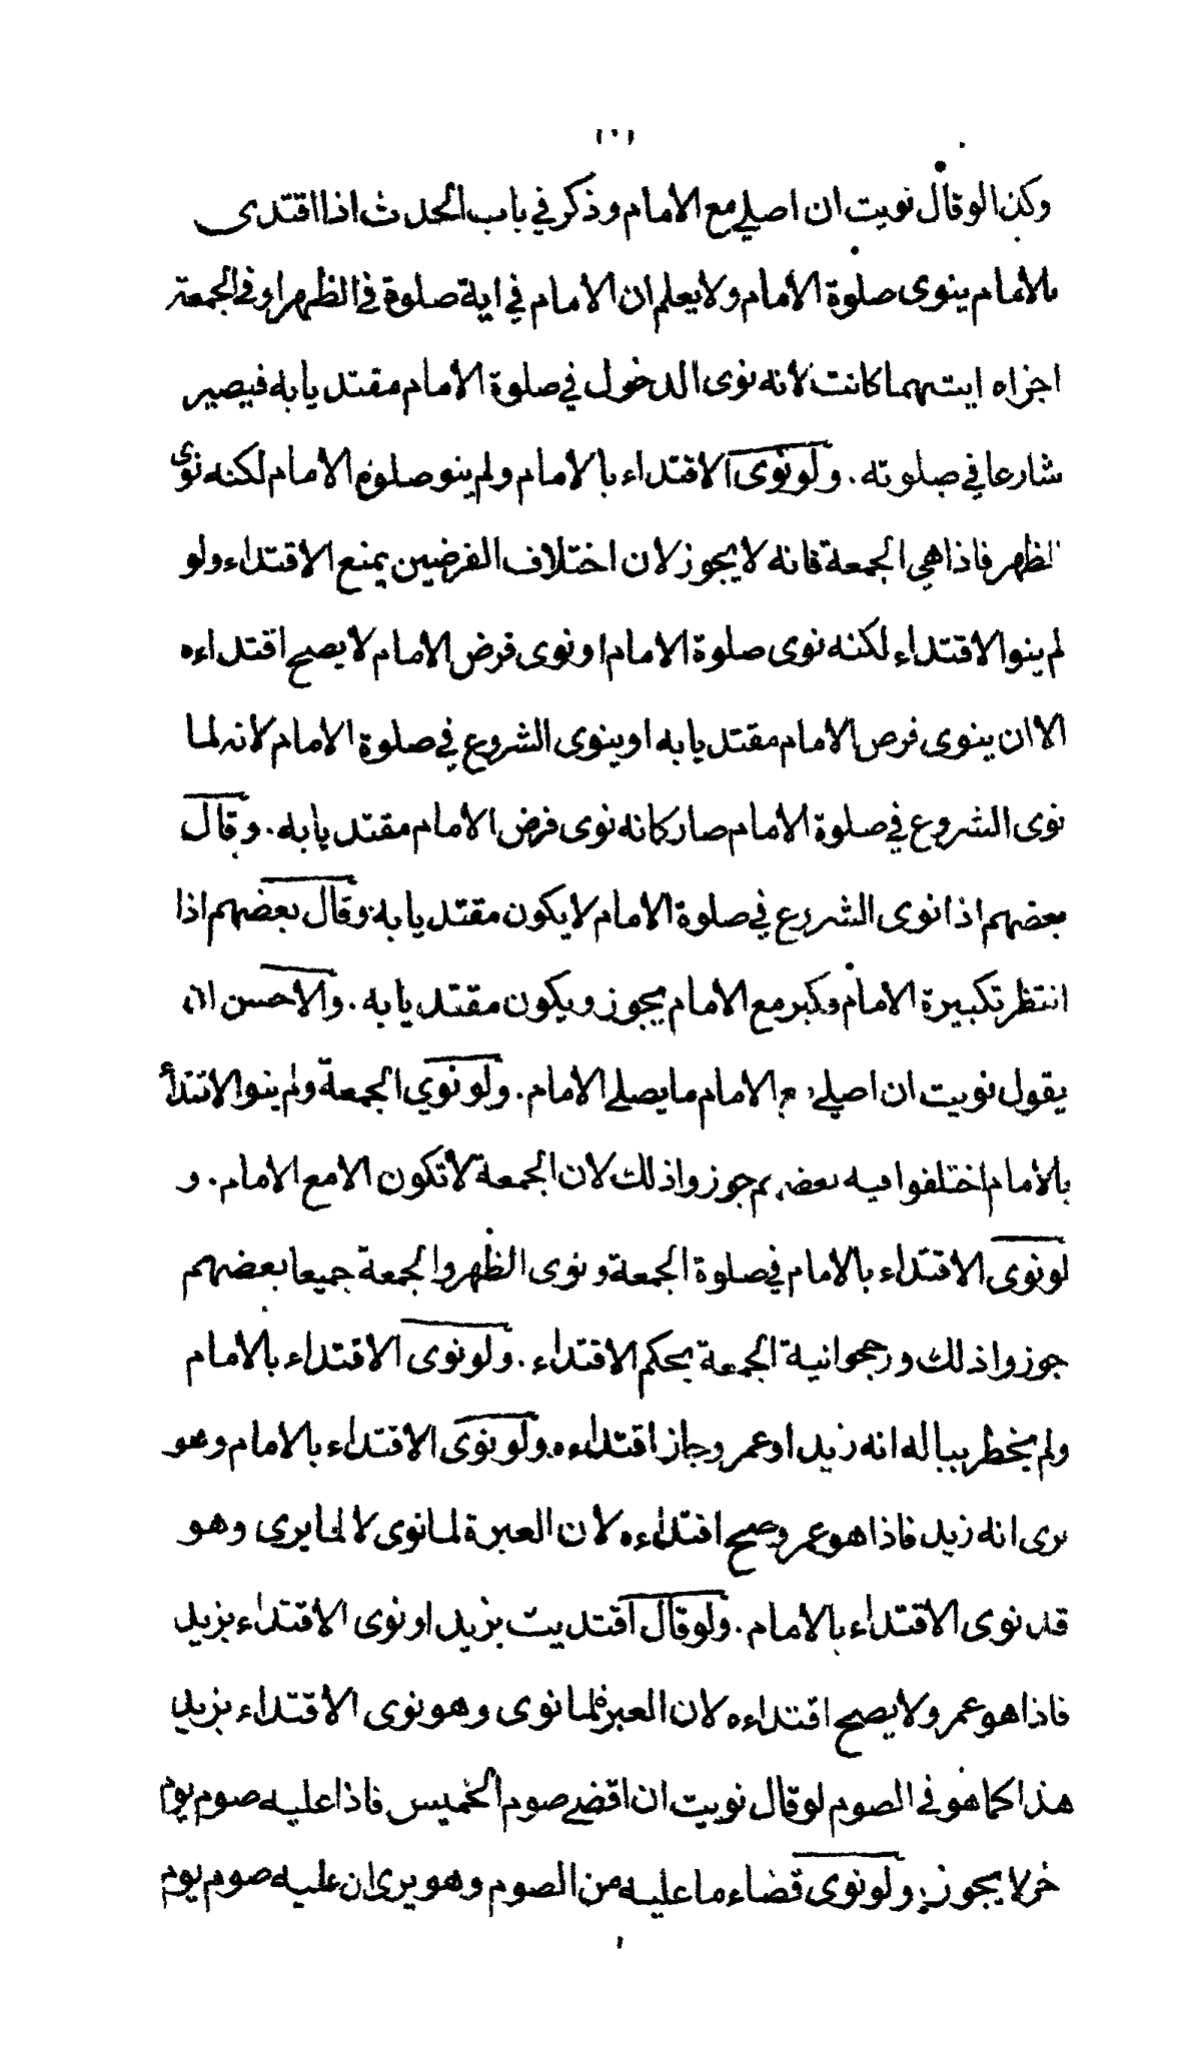 ١٠١
وكذا لو قال نويت ان اصلي مع الامام وذكر في باب الحدث اذا اقتدى
بالامام ينوى صلوة الامام ولا يعلم ان الامام في اية صلوة في الظهر او في الجمعة
اجزاه ايتهما كانت لانه نوى الدخول في صلوة الامام مقتديا به فيصير
شارعا في صلوته . ولو نوى الاقتداء بالامام ولم ينو صلوة الامام لكنه نوى
الظهر فاذا هي الجمعة فانه لا يجوز لان اختلاف الفرضين يمنع الاقتداء ولو
لم ينو الاقتداء لكنه نوى صلوة الامام او نوى فرض الامام لا يصح اقتداءه
الا ان ينوى فرض الامام مقتديا به او ينوى الشروع في صلوة الامام لانه لما
نوى الشروع في صلوة الامام صار كانه نوى فرض الامام مقتديا به . وقال
بعضهم اذا نوى الشروع في صلوة الامام لا يكون مقتديا به وقال بعضهم اذا
انتظر تكبيرة الامام وكبر مع الامام يجوز ويكون مقتديا به . والاحسن ان
يقول نويت ان اصلي مع الامام ما يصلي الامام . ولو نوي الجمعة ولم ينو الاقتداء
بالامام اختلفوا فيه بعضهم جوزوا ذلك لان الجمعة لا تكون الا مع الامام . و
لو نوى الاقتداء بالامام في صلوة الجمعة و نوى الظهر والجمعة جميعا بعضهم
جوزوا ذلك ورجحوا نية الجمعة بحكم الاقتداء . ولو نوى الاقتداء بالامام
ولم يخطر بباله انه زيد او عمرو جاز اقتداءه ولو نوى الاقتداء بالامام وهو
يرى انه زيد فاذا هو عمرو صح اقتداءه لان العبرة لما نوى لا لما يرى وهو
قد نوى الاقتداء بالامام . ولو قال اقتديت بزيد او نوى الاقتداء بزيد
فاذا هو عمرو لا يصح اقتداءه لان العبرة لما نوى وهو نوى الاقتداء بزيد
هذا كما هو في الصوم لو قال نويت ان اقضي صوم الخميس فاذا عليه صوم يوم
خر لا يجوز ولو نوى قضاء ما عليه من الصوم وهو يرى ان عليه صوم يوم